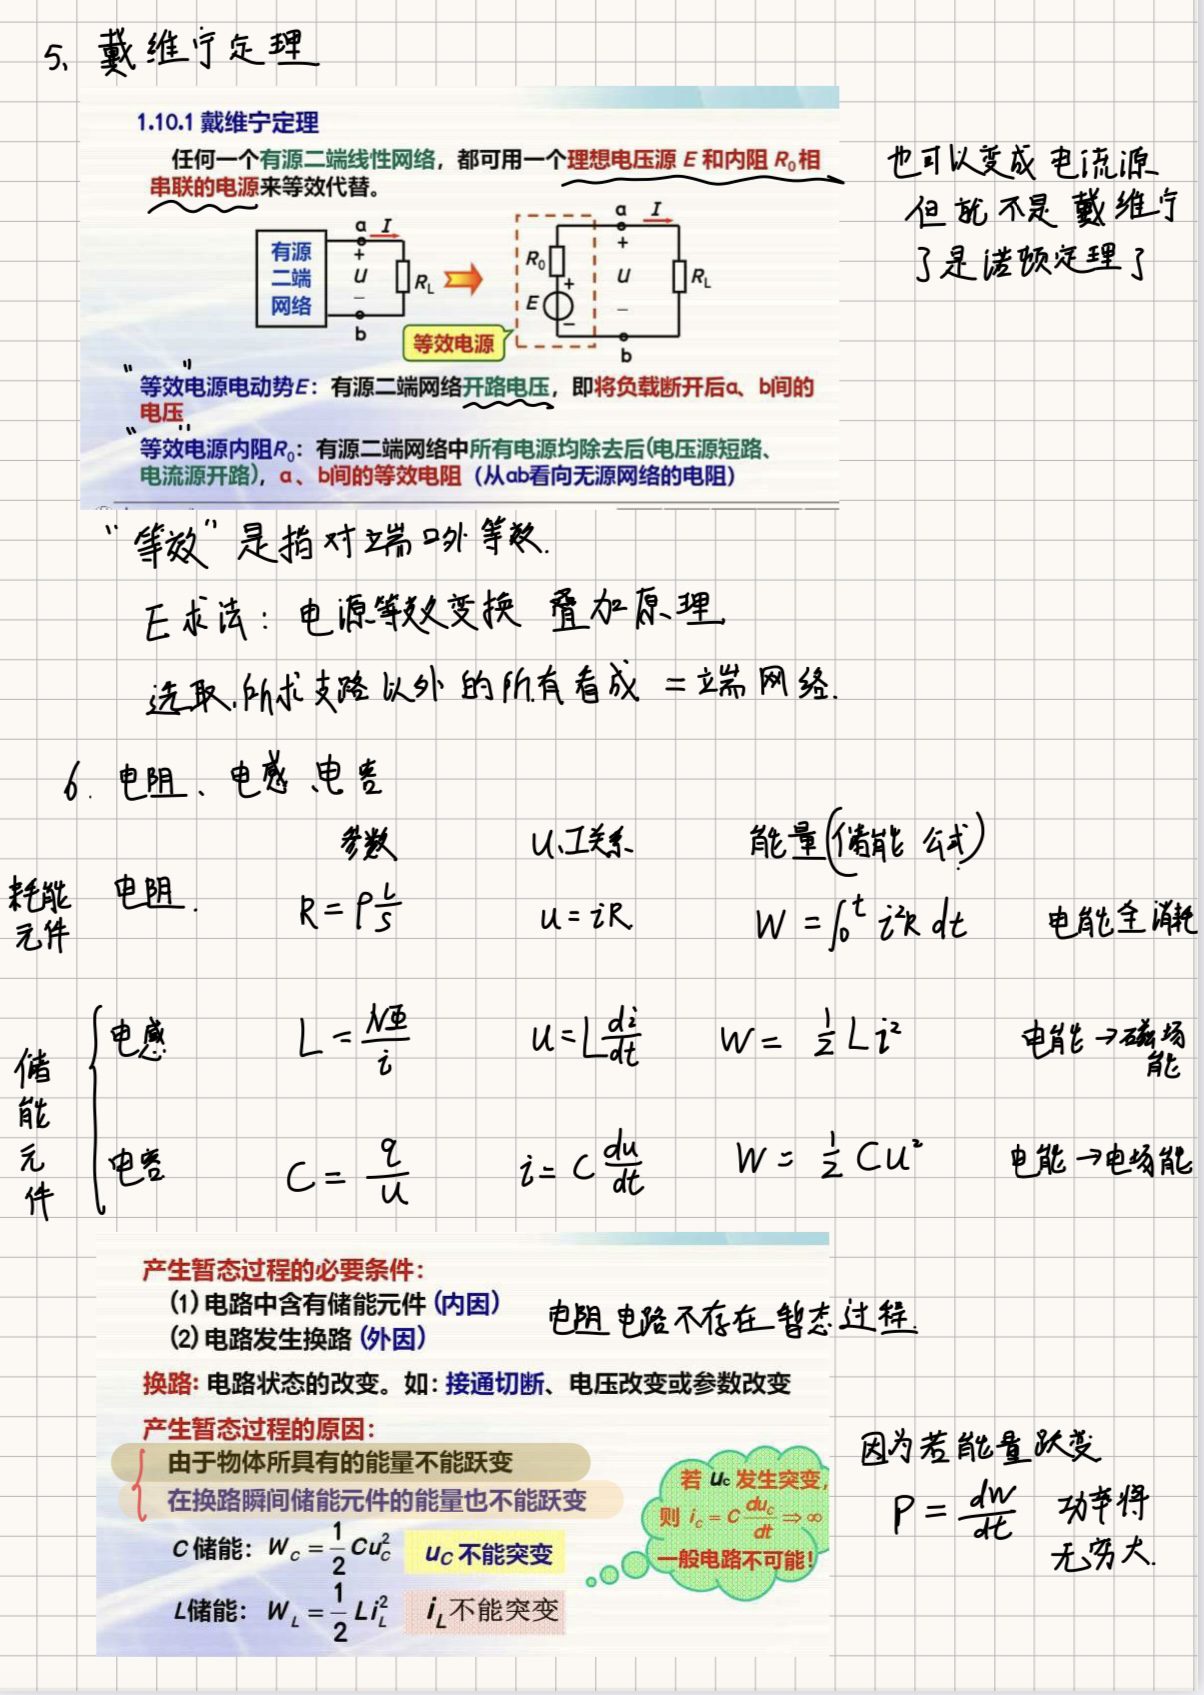 5、戴维宁定理
1.10.1 戴维宁定理
任何一个有源二端线性网络，都可用一个理想电压源 E 和内阻 R₀相
串联的电源来等效代替。
也可以变成电流源
但就不是戴维宁
了是诺顿定理了
有源
二端
网络
a I
+
U
−
b
R_L
R₀
+
E
−
a I
+
U
−
b
R_L
等效电源
“等效”电源电动势E：有源二端网络开路电压，即将负载断开后a、b间的
电压
“等效”电源内阻R₀：有源二端网络中所有电源均除去后(电压源短路、
电流源开路)，a、b间的等效电阻（从ab看向无源网络的电阻）
“等效”是指对端口外等效.
E求法：电源等效变换 叠加原理
选取所求支路以外的所有看成二端网络.
6. 电阻、电感、电容
参数 U、I关系 能量(储能公式)
耗能元件 电阻. R = ρL/S u = iR W = ∫₀ᵗ i²R dt 电能全消耗
储能元件
电感 L = NΦ/i u = L di/dt W = ½ L i² 电能→磁场能
电容 C = q/u i = C du/dt W = ½ C u² 电能→电场能
产生暂态过程的必要条件：
(1) 电路中含有储能元件 (内因)
(2) 电路发生换路 (外因)
电阻电路不存在暂态过程.
换路: 电路状态的改变。如: 接通切断、电压改变或参数改变
产生暂态过程的原因：
由于物体所具有的能量不能跃变
在换路瞬间储能元件的能量也不能跃变
C 储能： W_C = ½ Cu_C² u_C 不能突变
L储能： W_L = ½ Li_L² i_L不能突变
若 u_C 发生突变,
则 i_C = C du_C/dt ⇒ ∞
一般电路不可能!
因为若能量跃变
P = dw/dt 功率将
无穷大.